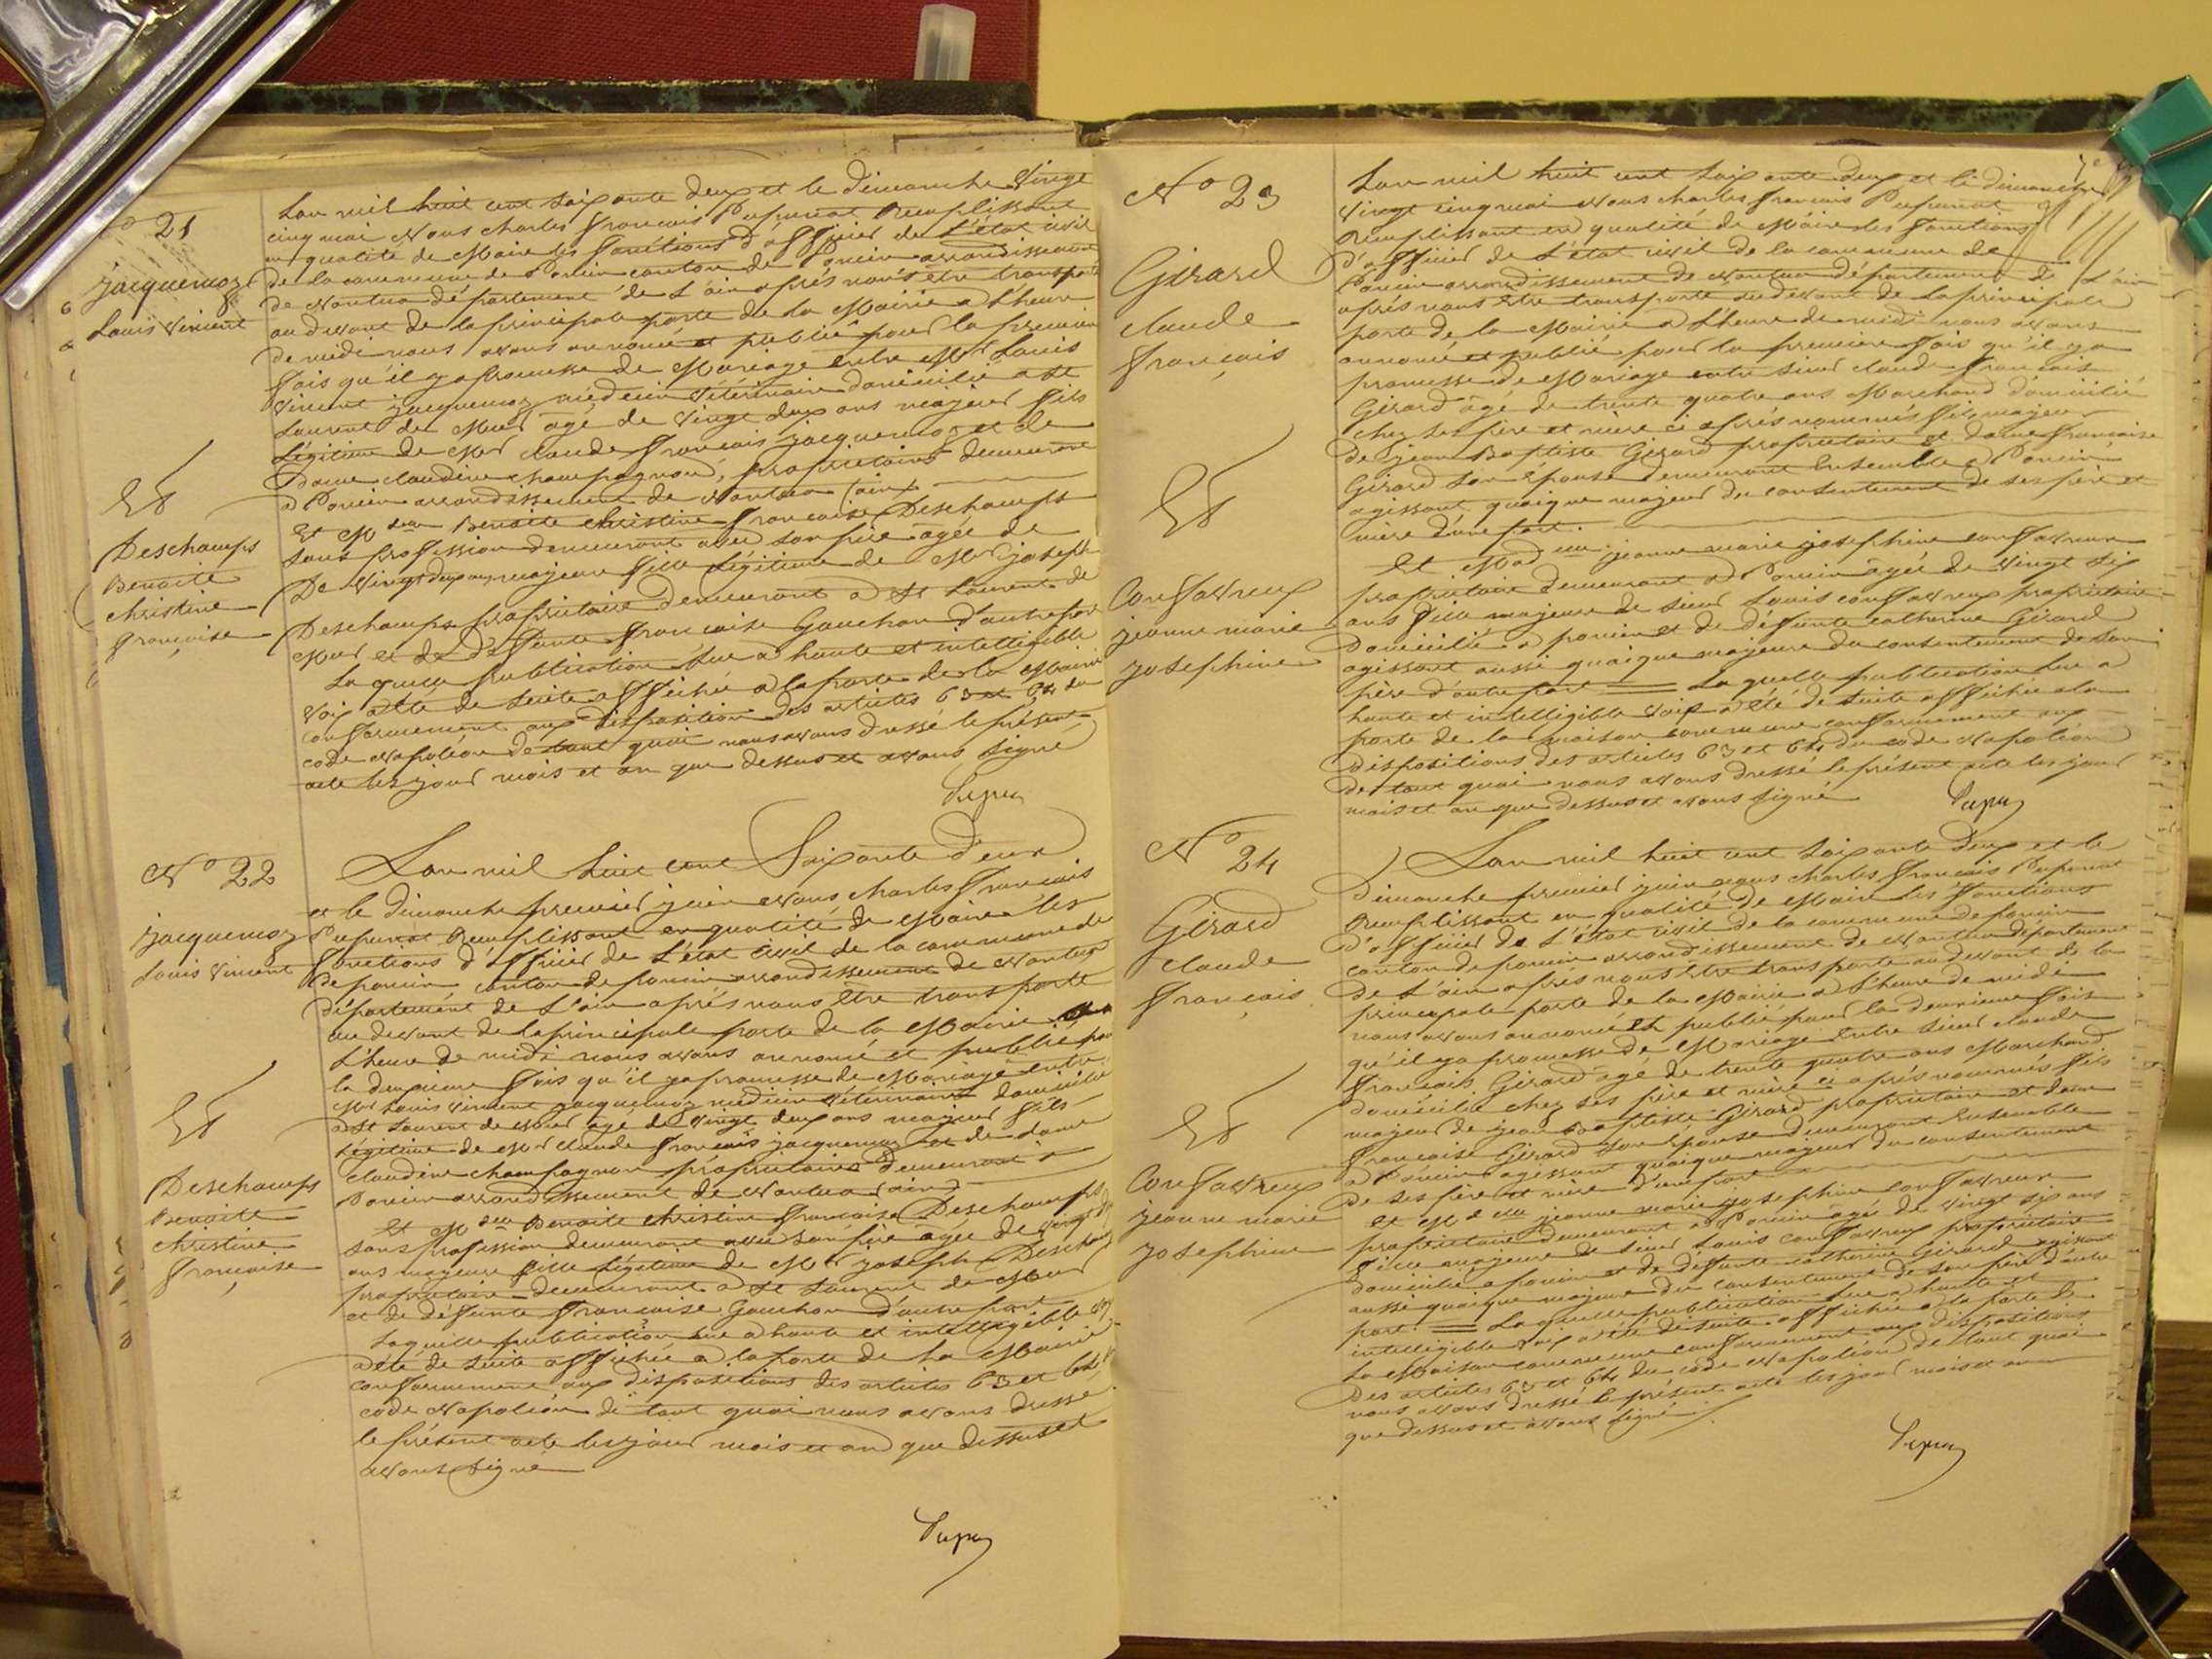 No 21
Jacquemoz
Louis Vincent
Et
Deschamps
Benoite
Christine
Françoise
L'an mil huit cent soixante deux et le dimanche vingt
cinq mai Nous Charles François Pupunat Remplissant
en qualité de Maire les fonctions d'officier de l'état civil
de la commune de Poncin canton de Poncin arrondissement
de Nantua département de l'ain après nous être transporté
au devant de la principale porte de la Mairie a l'heure
de midi nous avons annoncé et publié pour la première
fois qu'il y a promesse de Mariage entre Mr Louis
Vincent Jacquemoz médecin Vétérinaire domicilié a St
Laurent de Mur âgé de vingt deux ans majeur fils
Légitime de Mr Claude François Jacquemoz et de
Dame Claudine Champagnon, propriétaires demeurant
a Poncin arrondissement de Nantua (ain)
Et Mdelle Benoite Christine Françoise Deschamps
sans profession demeurant avec son père agée de
De vingt deux ans majeure fille Légitime de Mr Joseph
Deschamps propriétaire demeurant a St Laurent de
Mur et de défunte Françoise Gauchon d'autre part
La quelle publication lue a haute et intelligible
voix a été de suite affichée a la porte de la Mairie
conformement aux disposition des articles 63 et 64 du
code Napoléon de tout quoi nous avons dressé le présent
acte les jour mois et an que dessus et avons signé
No 22
Jacquemoz
Louis Vincent
Et
Deschamps
Benoite
Christine
Françoise
L'an mil huit cent Soixante deux
et le dimanche premier juin Nous Charles François
Pupunat Remplissant en qualité de Maire les
fonctions d'officier de l'état civil de la commune de
de Poncin canton de Poncin arrondissement de Nantua
département de l'ain après nous être transporté
au devant de la principale porte de la Mairie
L'heure de midi nous avons annoncé et publié pour
la deuxième fois qu'il y a promesse de Mariage entre
Mr Louis Vincent Jacquemoz médecin Vétérinaire domicilié
a St Laurent de Mur âgé de vingt deux ans majeur fils
Légitime de Mr Claude François Jacquemoz et de dame
Claudine Champagnon propriétaires demeurant a
Poncin arrondissement de Nantua (ain)
Et Mdelle Benoite Christine Françoise Deschamps
sans profession demeurant avec son père agée de vingt
ans majeure fille Légitime de Mr Joseph Deschamps
propriétaire demeurant a St Laurent de Mur
et de défunte Françoise Gauchon d'autre part
Laquelle publication lue a haute et intelligible
a été de suite affichée a la porte de la Mairie
conformement aux dispositions des articles 63 et 64
code Napoléon de tout quoi nous avons dressé
le présent acte les jour mois et an que dessus et
avons signé
No 23
Girard
Claude
François
Et
Confavreux
Jeanne Marie
Josephine
L'an mil huit cent soixante deux et le dimanche
vingt cinq mai Nous Charles François Pupunat
Remplissant en qualité de Maire les fonctions
D'officier de l'état civil de la commune de
Poncin arrondissement de Nantua département de l'ain
après nous être transporté au devant de la principale
porte de la Mairie a l'heure de midi nous avons
annoncé et publié pour la première fois qu'il y a
promesse de Mariage entre sieur Claude François
Girard âgé de trente quatre ans Marchand domicilié
chez ses père et mère ci après nommés fils majeur
de Jean Baptiste Girard propriétaire et dame Françoise
Girard son épouse demeurant Ensemble a Poncin
agissant quoique majeur du consentement de ses père et
mère d'une part.
Et Madelle Jeanne Marie Josephine Confavreux
propriétaire demeurant a Poncin âgée de vingt six
ans fille majeure de sieur Louis Confavreux propriétaire
domicilié a Poncin et de défunte Catherine Girard
agissant aussi quoique majeure du consentement de son
père d'autre part La quelle publication lue a
haute et intelligible voix a été de suite affichée a la
porte de la maison commune conformement aux
dispositions des articles 63 et 64 du code Napoléon
de tout quoi nous avons dressé le présent acte les jour
mois et an que dessus et avons signé
No 24
Girard
Claude
François
Et
Confavreux
Jeanne Marie
Josephine
L'an mil huit cent soixante deux et le
Dimanche premier juin nous Charles François Pupunat
Remplissant en qualité de Maire les fonctions
D'officier de l'état civil de la commune de Poncin
canton de Poncin arrondissement de Nantua département
de l'ain après nous être transporté au devant de la
principale porte de la Mairie a l'heure de midi
nous avons annoncé et publié pour la deuxieme fois
qu'il y a promesse de Mariage Entre Sieur Claude
François Girard âgé de trente quatre ans Marchand
domicilié chez ses père et mère ci après nommés fils
majeur de Jean Baptiste Girard propriétaire et dame
Françoise Girard son épouse demeurant Ensemble
a Poncin agissant quoique majeur du consentement
de ses père et mère d'une part
Et Mdelle Jeanne Marie Josephine Confavreux
propriétaire demeurant a Poncin âgé de vingt six ans
fille majeure de sieur Louis Confavreux propriétaire
domicilié a Poncin et de défunte Catherine Girard agissant
aussi quoique majeure du consentement de son père d'autre
part. La quelle publication lue a haute et
intelligible voix a été de suite affichée a la porte de
La Maison commune conformement aux dispositions
Des articles 63 et 64 du code Napoléon de tout quoi
nous avons dressé le présent acte les jour mois et an
que dessus et avons signé